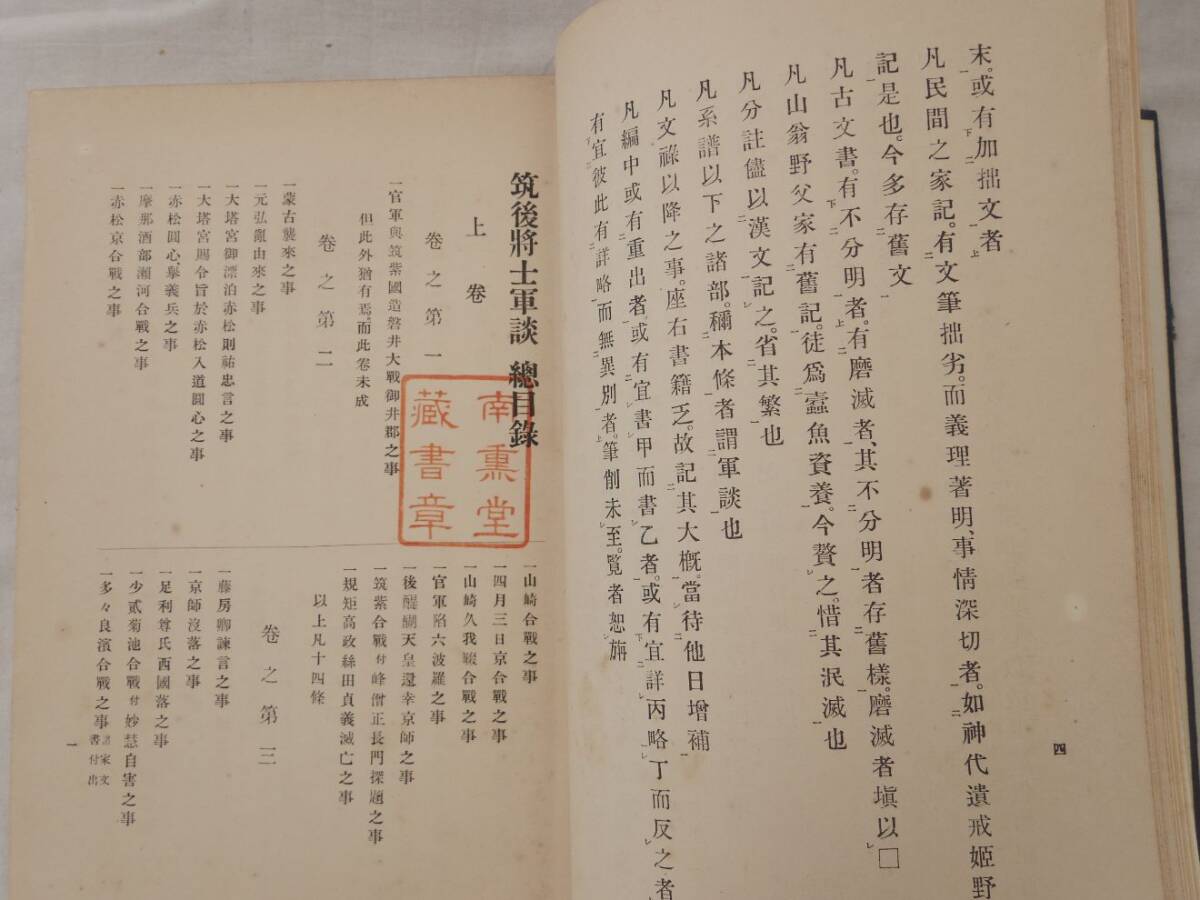 末。或有加拙文者
凡民間之家記。有文筆拙劣。而義理著明、事情深切者。如神代遺戒姬野
記是也。今多存舊文
凡古文書。有不分明者。有磨滅者、其不分明者存舊樣。磨滅者塡以□
凡山翁野父家有舊記。徒爲蠧魚資養。今贅之。惜其泯滅也
凡分註儘以漢文記之。省其繁也
凡系譜以下之諸部。稱本條者謂軍談也
凡文祿以降之事。座右書籍乏。故記其大槪。當待他日增補
凡編中或有重出者。或有宜書甲而書乙者。或有宜詳丙略丁而反之者
有宜彼此有詳略而無異別者。筆削未至。覽者恕旃
四
筑後將士軍談 總目錄
上卷
卷之第一
一官軍與筑紫國造磐井大戰御井郡之事
但此外猶有焉。而此卷未成
卷之第二
一蒙古襲來之事
一元弘亂由來之事
一大塔宮御漂泊赤松則祐忠言之事
一大塔宮賜令旨於赤松入道圓心之事
一赤松圓心擧義兵之事
一摩那酒部瀨河合戰之事
一赤松京合戰之事
一山崎合戰之事
一四月三日京合戰之事
一山崎久我畷合戰之事
一官軍陷六波羅之事
一後醍醐天皇還幸京師之事
一筑紫合戰付峰僧正長門探題之事
一規矩高政絲田貞義滅亡之事
以上凡十四條
卷之第三
一藤房卿諫言之事
一京師沒落之事
一足利尊氏西國落之事
一少貳菊池合戰付妙慧自害之事
一多々良濱合戰之事諸家文書付出
一
南薰堂
藏書章